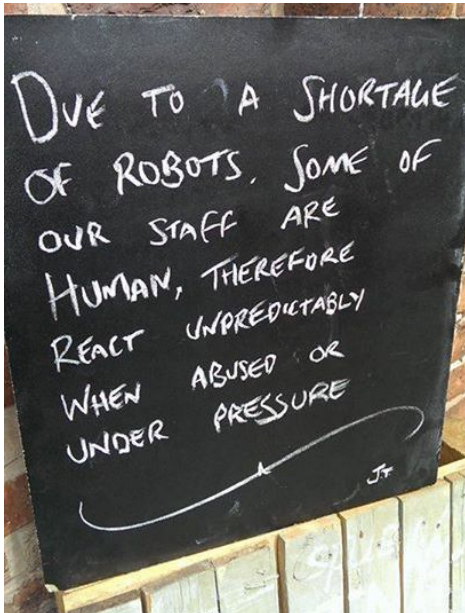 DUE TO A SHORTAGE
OF ROBOTS. SOME OF
OUR STAFF ARE
HUMAN, THEREFORE
REACT UNPREDICTABLY
WHEN ABUSED OR
UNDER PRESSURE
J.T